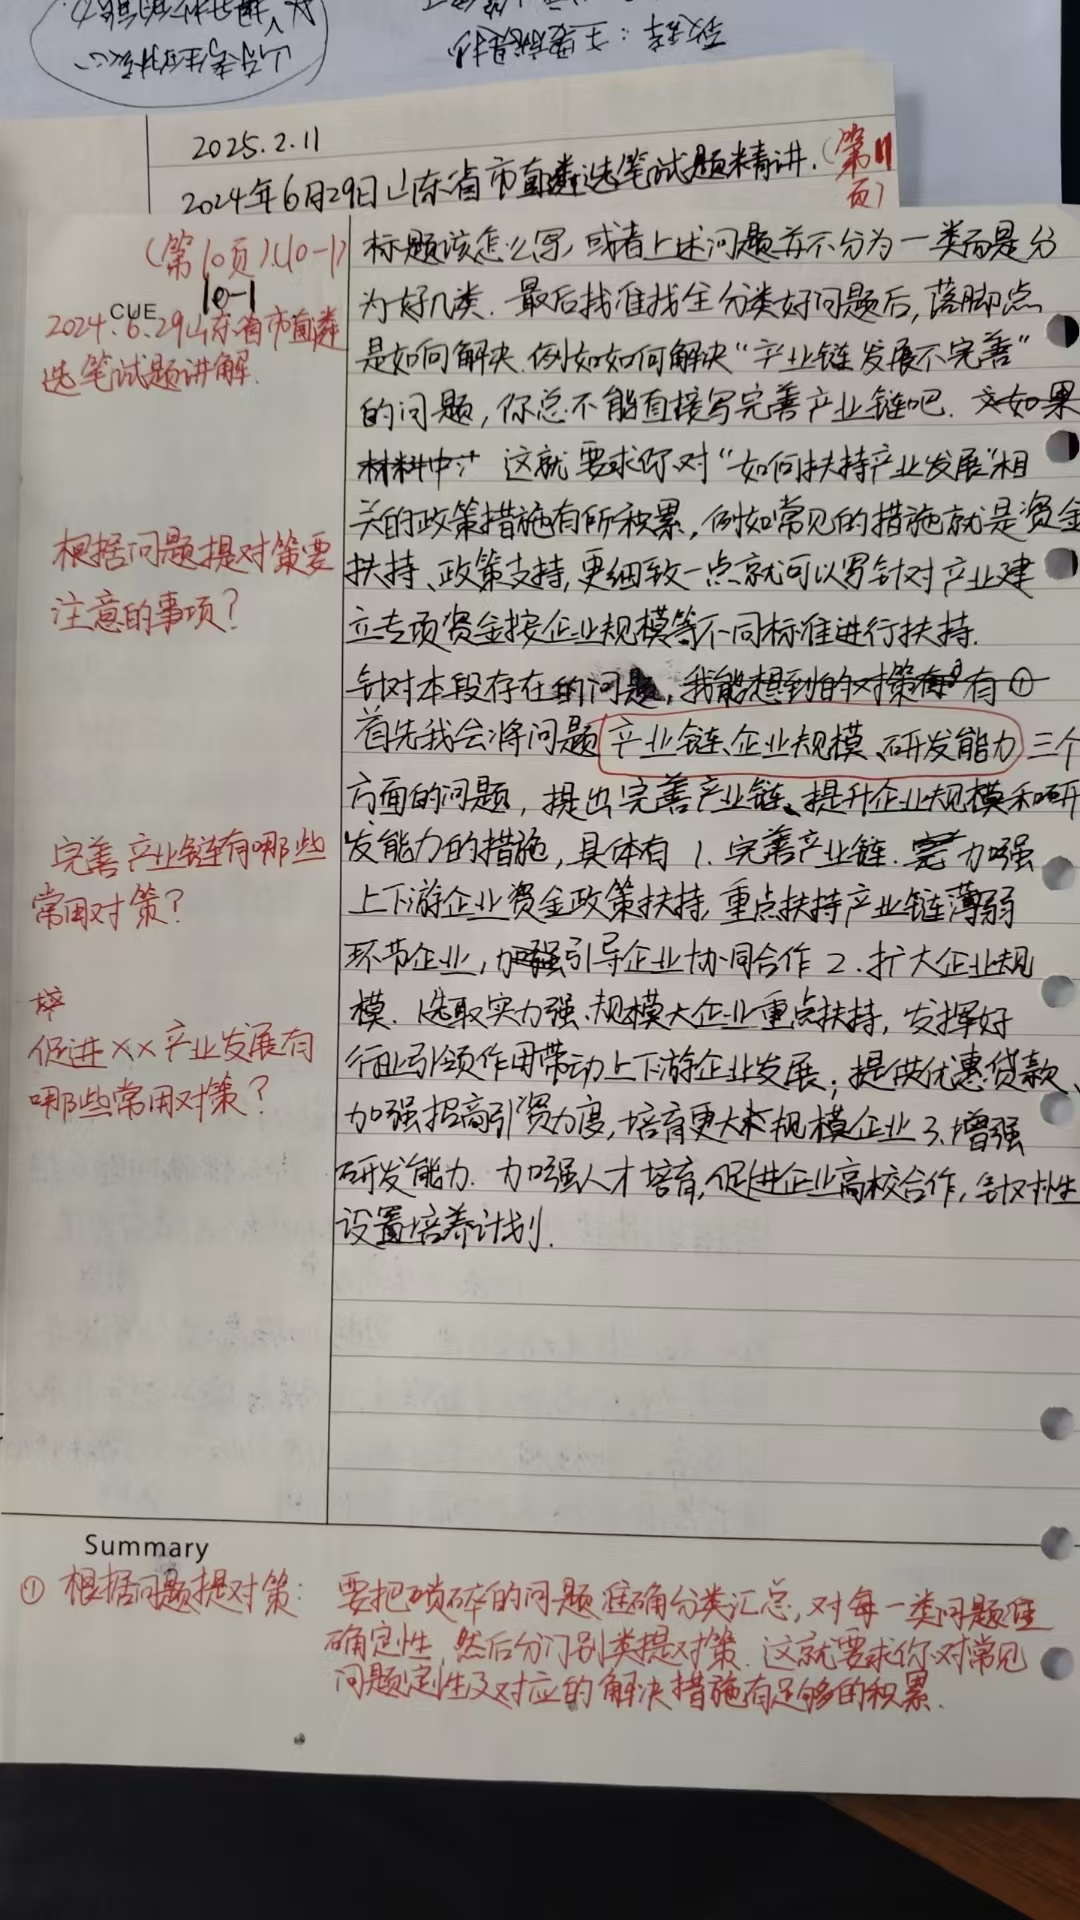 2025.2.11
2024年6月29日山东省市直遴选笔试题精讲.(第11页)
(第10页)(10-1)
10-1
CUE
2024.6.29山东省市直遴
选笔试题讲解.
根据问题提对策要
注意的事项?
完善产业链有哪些
常用对策?
促进××产业发展有
哪些常用对策?
标题该怎么写,或者上述问题并不分为一类而是分
为好几类.最后找准找全分类好问题后,落脚点
是如何解决.例如如何解决“产业链发展不完善”
的问题,你总不能直接写完善产业链吧.如果
材料中 这就要求你对“如何扶持产业发展”相
关的政策措施有所积累,例如常见的措施就是资金
扶持、政策支持,更细致一点就可以写针对产业建
立专项资金按企业规模等不同标准进行扶持.
针对本段存在的问题,我能想到的对策有 有①
首先我会将问题产业链、企业规模、研发能力三个
方面的问题,提出完善产业链、提升企业规模和研
发能力的措施,具体有 1.完善产业链.加强
上下游企业资金政策扶持,重点扶持产业链薄弱
环节企业,加强引导企业协同合作 2.扩大企业规
模.选取实力强、规模大企业重点扶持,发挥好
行业引领作用带动上下游企业发展;提供优惠贷款、
加强招商引资力度,培育更大规模企业 3.增强
研发能力.加强人才培育,促进企业高校合作,针对性
设置培养计划.
Summary
①根据问题提对策: 要把琐碎的问题准确分类汇总,对每一类问题准
确定性,然后分门别类提对策.这就要求你对常见
问题定性及对应的解决措施有足够的积累.